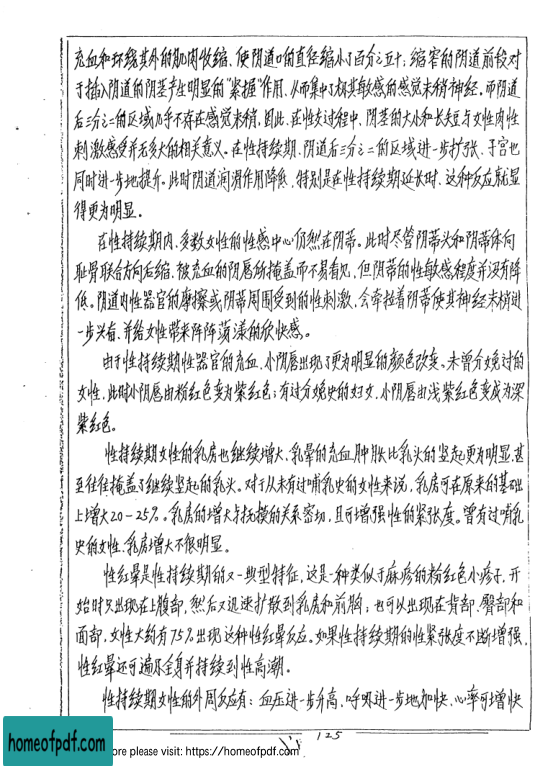 充血和环绕其外的肌肉收缩，使阴道口的直径缩小了百分之五十；缩窄的阴道前段对
于插入阴道的阴茎产生明显的“紧握”作用，从而集中了极其敏感的感觉末稍神经。而阴道
后三分之二的区域几乎不存在感觉末稍。因此，在性交过程中，阴茎的大小和长短与女性肉性
刺激感受并无多大的相关意义。在性持续期，阴道后三分之二的区域进一步扩张，子宫也
同时进一步地提升。此时阴道润滑作用降低，特别是在性持续期延长时，这种反应就显
得更为明显。
在性持续期内，多数女性的性感中心仍然在阴蒂。此时尽管阴蒂头和阴蒂体向
耻骨联合方向后缩，被充血的阴唇所掩盖而不易看见，但阴蒂的性敏感程度并没有降
低。阴道内性器官的摩擦或阴蒂周围受到的性刺激，会牵拉着阴蒂使其神经末梢进
一步兴奋，并给女性带来阵阵荡漾的欣快感。
由于性持续期性器官的充血，小阴唇出现了更为明显的颜色改变。未曾分娩过的
女性，此时小阴唇由粉红色变为紫红色；有过分娩史的妇女，小阴唇由浅紫红色变成为深
紫红色。
性持续期女性的乳房也继续增大，乳晕的充血肿胀比乳头的竖起更为明显，甚
至往往掩盖了继续竖起的乳头。对于从未有过哺乳史的女性来说，乳房可在原来的基础
上增大20-25%。乳房的增大与抚摸的关系密切，且可增强性的紧张度。曾有过哺乳
史的女性，乳房增大不很明显。
性红晕是性持续期的又一典型特征，这是一种类似于麻疹的粉红色小疹子，开
始时只出现在上腹部，然后又迅速扩散到乳房和前胸；也可以出现在背部、臀部和
面部，女性大约有75%出现这种性红晕反应。如果性持续期的性紧张度不断增强，
性红晕还可遍及全身并持续到性高潮。
性持续期女性的外周反应有：血压进一步升高，呼吸进一步地加快，心率可增快
125
homeofpdf.com
ore please visit: https://homeofpdf.com